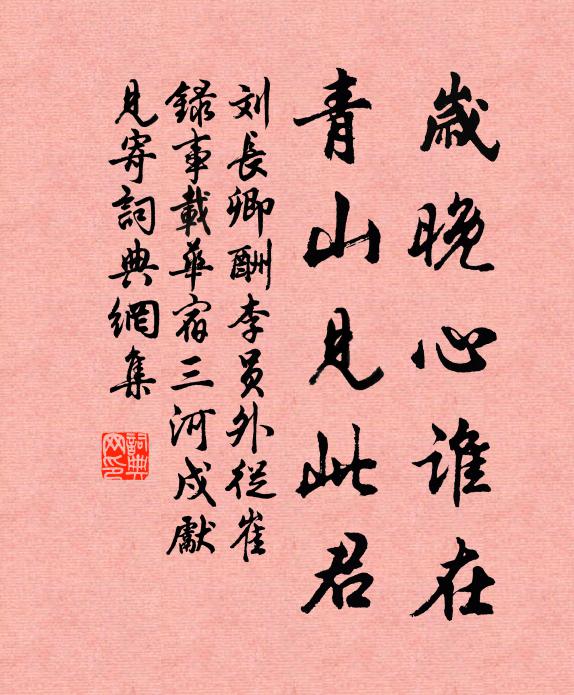 歲晚心誰在
青山見此君
刘長卿酬李員外從崔
録事載華宿三河戍獻
見寄詞典網集
詞典網印